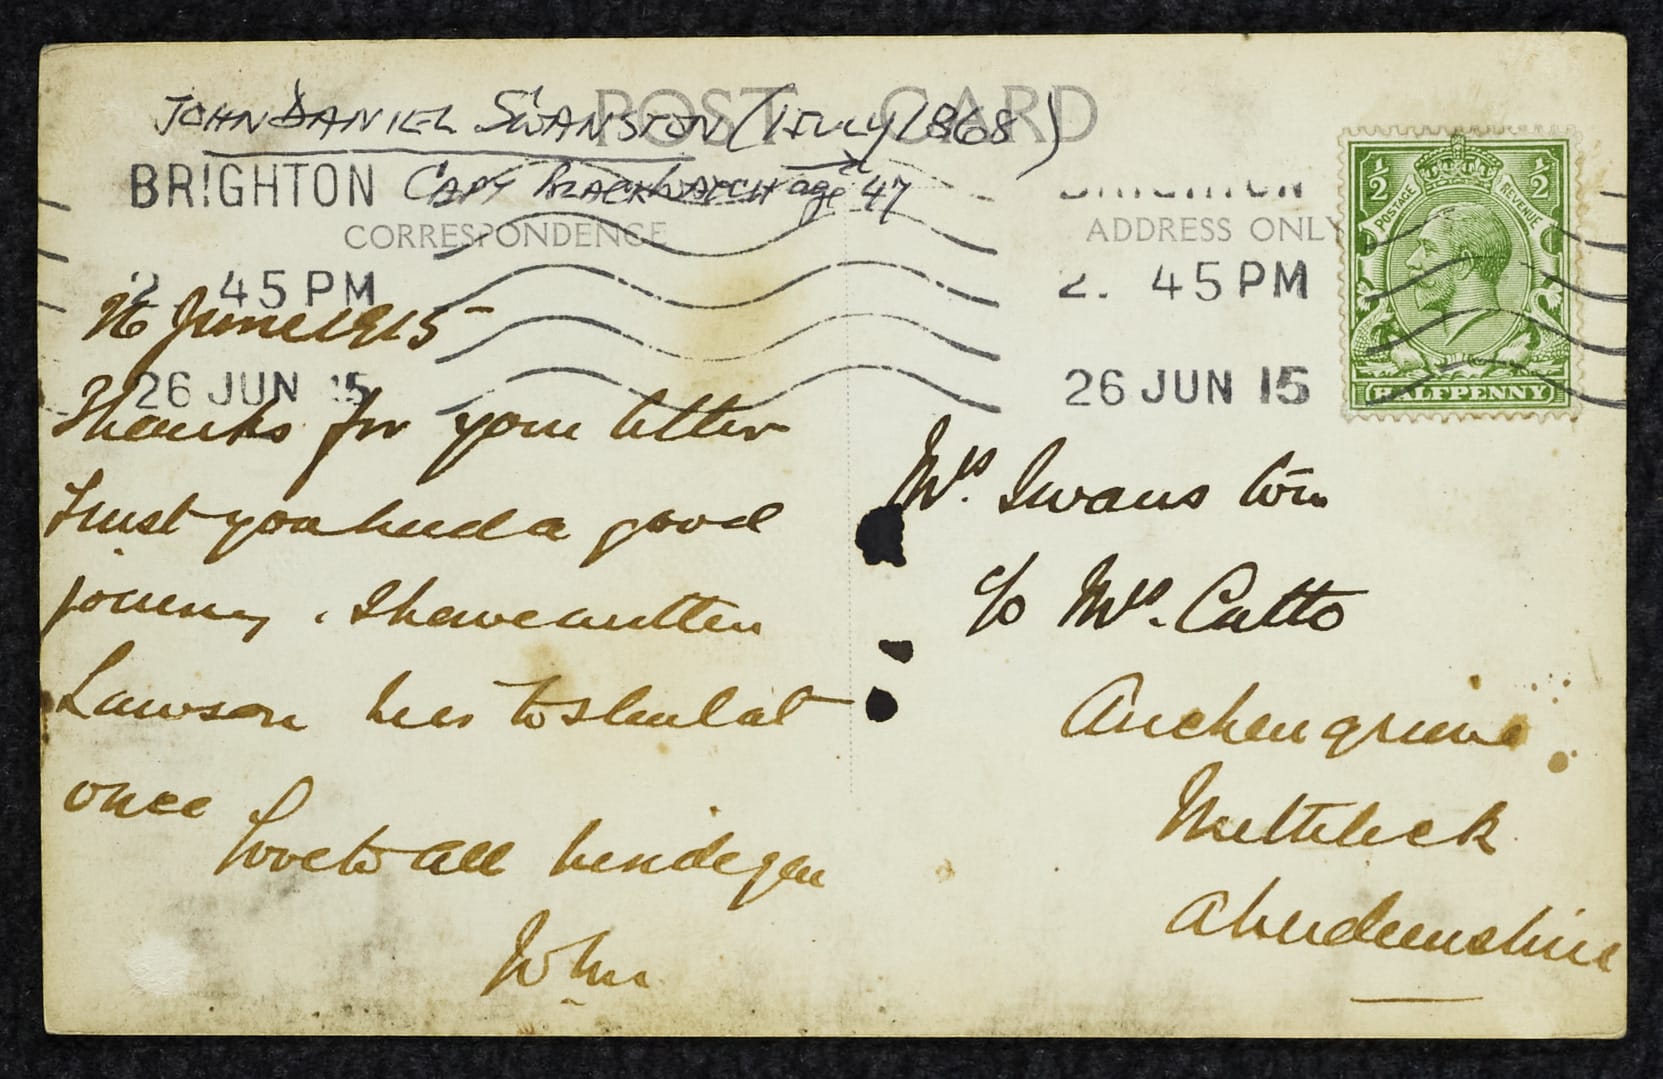 POST CARD
JOHN DANIEL SWANSTON (1 JULY 1868)
BRIGHTON
CAPT BLACK WATCH age 47
CORRESPONDENCE
2. 45 PM
26 June 1915
26 JUN 15
Thanks for your letter
Trust you had a good
journey. I have written
Lawson
once
Love to all
John
ADDRESS ONLY
2. 45 PM
26 JUN 15
½ ½
POSTAGE REVENUE
HALFPENNY
Mrs. Swanston
c/o Mrs. Catto
Aberdeenshire